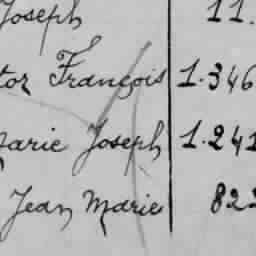 Joseph 11.
tor François 1.346
Marie Joseph 1.241
Jean Marie 822